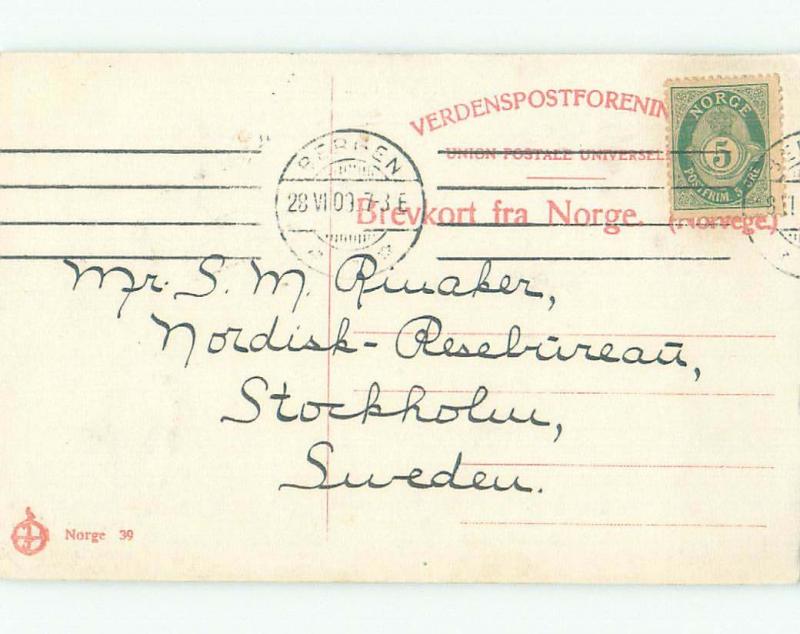 VERDENSPOSTFORENIN
UNION POSTALE UNIVERSEL
Brevkort fra Norge. (Norvege.)
NORGE
5
POSTFRIM 5 ØRE
BERGEN
28 VI 09 7-8 E
Mr. S. M. Rinaker,
Nordisk-Resebūreaū,
Stockholm,
Sweden.
Norge 39